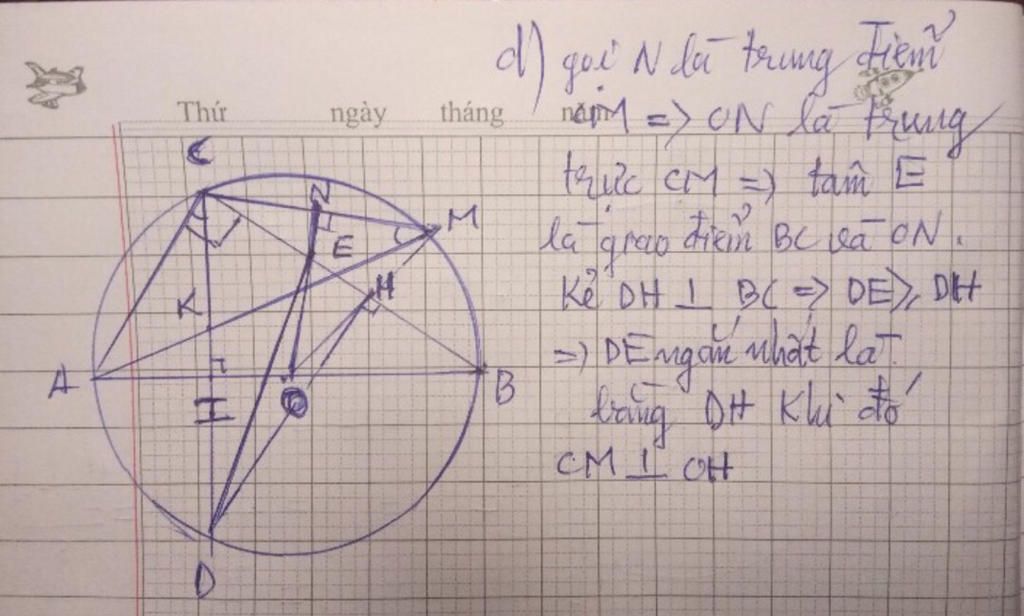 d) gọi N là trung điểm
Thứ ngày tháng năm
CM => ON là trung
trực CM => tâm E
là giao điểm BC và ON.
Kẻ DH ⊥ BC => DE ≥ DH
=> DE ngắn nhất là
bằng DH Khi đó
CM ⊥ OH
C
N
M
E
K
H
A
I
O
B
D